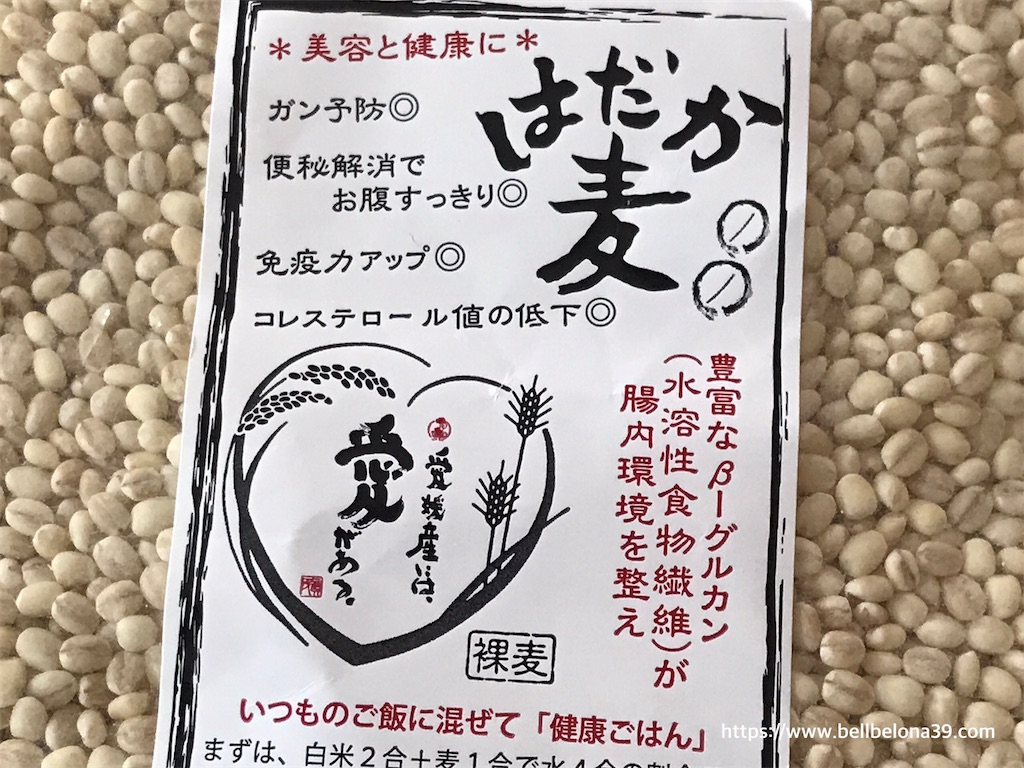 ＊美容と健康に＊
はだか
麦
ガン予防◎
便秘解消で
お腹すっきり◎
免疫力アップ◎
コレステロール値の低下◎
豊富なβーグルカン
（水溶性食物繊維）が
腸内環境を整え
愛媛産には、
愛がある。
裸麦
いつものご飯に混ぜて「健康ごはん」
まずは、白米２合＋麦１合で水４合の割合
https://www.bellbelona39.com